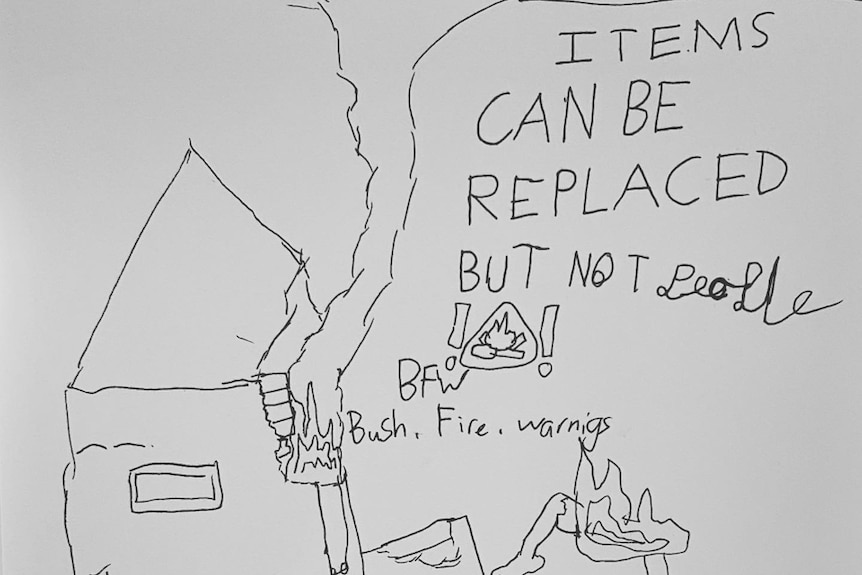 ITEMS
CAN BE
REPLACED
BUT NOT People
! !
BFW
Bush. Fire. warnigs